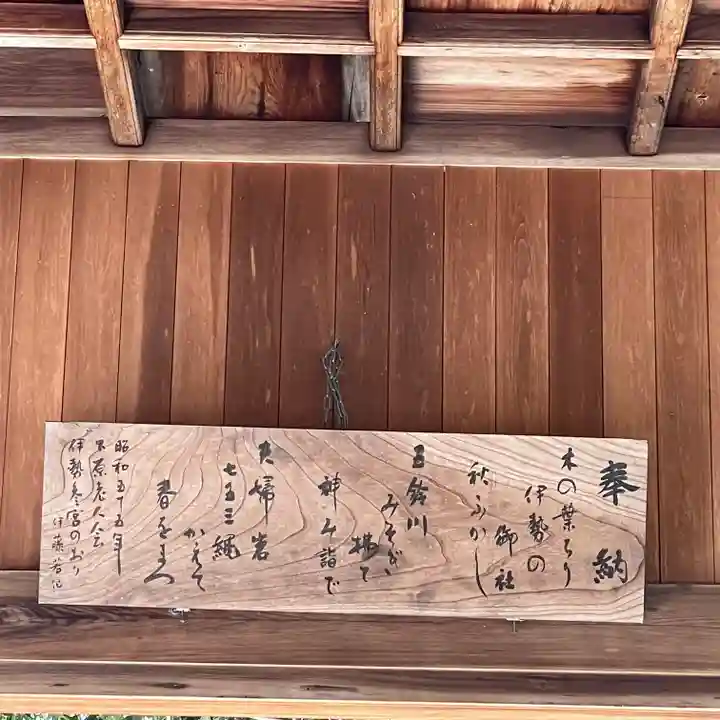 奉納
木の葉ちり
伊勢の
御社
秋ふかし
五鈴川
みそぎ
神み詣で
夫婦岩
七五三縄
かえて
春をまつ
昭和五十五年
原老人会
伊勢参宮のおり
伊藤